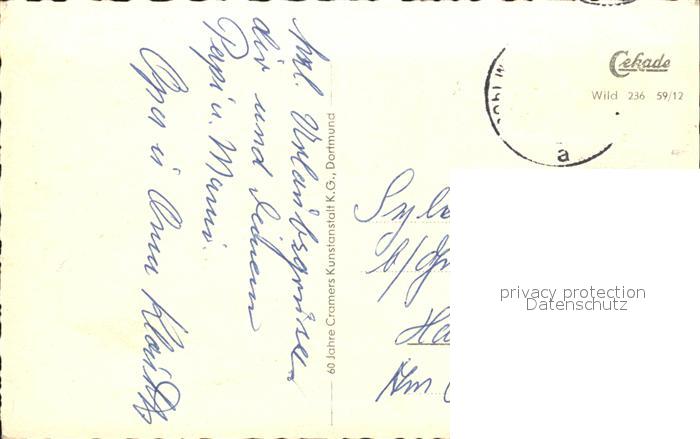 Hzl. Urlaubsgrüsse
dir und deinem
Papi u. Mami.
Opa u Oma
60 Jahre Cramers Kunstanstalt K.G., Dortmund
Cekade
Wild 236 59/12
a
privacy protection
Datenschutz